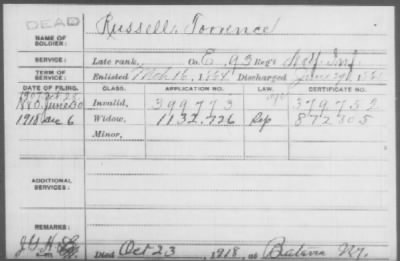 DEAD
Russell, Torrence
NAME OF SOLDIER:
SERVICE: Late rank, Co. E, 93 Reg't Inf.
TERM OF SERVICE: Enlisted Mch 16, 1864 Discharged June 29,
DATE OF FILING. CLASS. APPLICATION NO. LAW. CERTIFICATE NO.
1880 June 30 Invalid, 399.773 379.752
1918 Dec 6 Widow, 1132.726 Sep 872.805
Minor,
ADDITIONAL SERVICES:
REMARKS:
Died Oct 23, 1918, at Batavia N.Y.